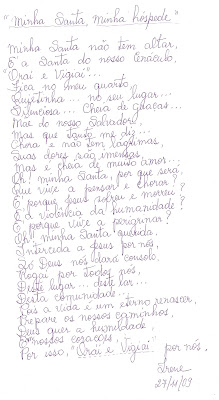 "Minha Santa, minha hóspede"
Minha Santa não tem altar,
É a Santa do nosso Cenáculo,
"Orai e Vigiai"...
Fica no meu quarto,
Quietinha... no seu lugar...
Silenciosa... Cheia de graças...
Mãe do nosso Salvador!
Mas que tanto me diz...
Chora e não tem lágrimas,
Suas dores são imensas,
Mas é cheia de muito amor...
Oh! minha Santa, por que será,
Que vive a pensar e chorar?
É porque Jesus sofreu e morreu
E a violência da humanidade?
É porque vive a peregrinar?
Oh! minha Santa querida,
Interceda a Jesus por nós,
Só Deus nos dará consolo.
Rogai por todos nós,
Deste lugar... deste lar...
Desta comunidade...
Pois a vida é um eterno renascer,
Prepare os nossos caminhos,
Deus quer a humildade,
E nossos corações...
Por isso, "Orai e Vigiai" por nós,
Irene
27/11/09